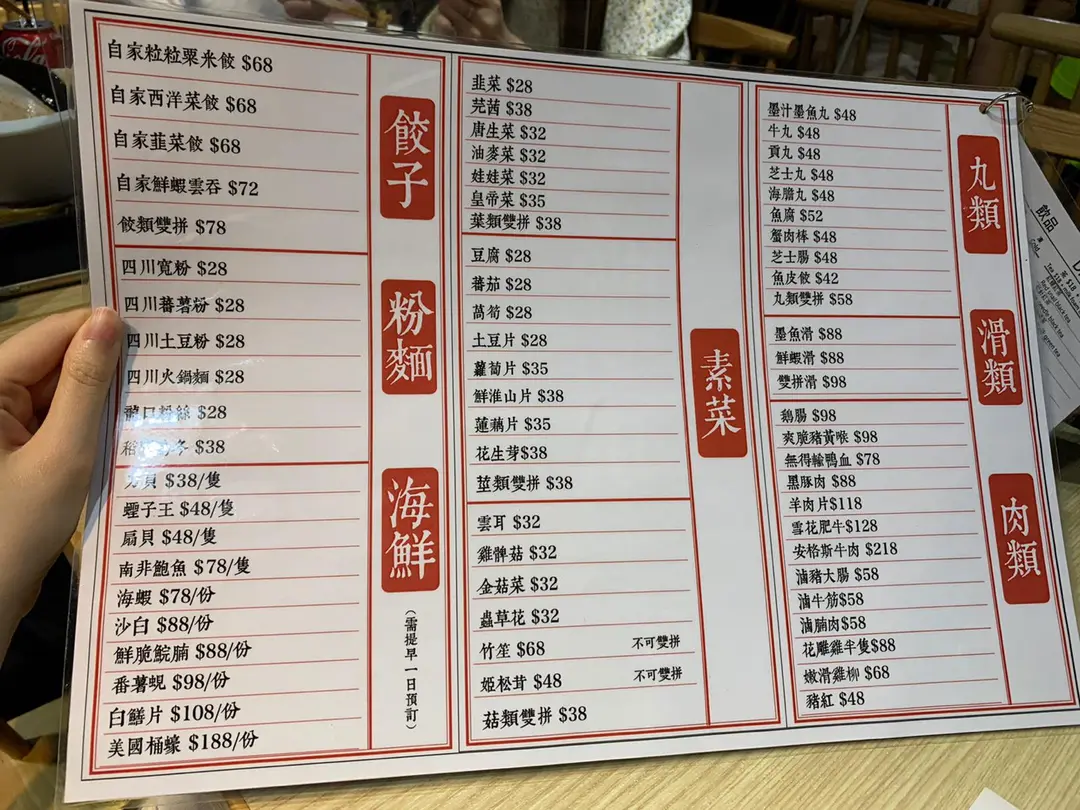 自家粒粒粟米餃 $68
自家西洋菜餃 $68
自家韮菜餃 $68
自家鮮蝦雲吞 $72
餃類雙拼 $78
餃子
四川寬粉 $28
四川蕃薯粉 $28
四川土豆粉 $28
四川火鍋麵 $28
龍口粉絲 $28
冬 $38
粉麵
貝 $38/隻
蟶子王 $48/隻
扇貝 $48/隻
南非鮑魚 $78/隻
海蝦 $78/份
沙白 $88/份
鮮脆鯇腩 $88/份
番薯蜆 $98/份
白鱔片 $108/份
美國桶蠔 $188/份
海鮮
(需提早一日預訂)
韭菜 $28
芫茜 $38
唐生菜 $32
油麥菜 $32
娃娃菜 $32
皇帝菜 $35
葉類雙拼 $38
豆腐 $28
蕃茄 $28
萵筍 $28
土豆片 $28
蘿蔔片 $35
鮮淮山片 $38
蓮藕片 $35
花生芽$38
莖類雙拼 $38
雲耳 $32
雞髀菇 $32
金菇菜 $32
蟲草花 $32
竹笙 $68 不可雙拼
姬松茸 $48 不可雙拼
菇類雙拼 $38
素菜
墨汁墨魚丸 $48
牛丸 $48
貢丸 $48
芝士丸 $48
海膽丸 $48
魚腐 $52
蟹肉棒 $48
芝士腸 $48
魚皮餃 $42
丸類雙拼 $58
丸類
墨魚滑 $88
鮮蝦滑 $88
雙拼滑 $98
滑類
鵝腸 $98
爽脆豬黃喉 $98
無得輸鴨血 $78
黑豚肉 $88
羊肉片$118
雪花肥牛$128
安格斯牛肉 $218
滷豬大腸 $58
滷牛筋$58
滷腩肉$58
花雕雞半隻$88
嫩滑雞柳 $68
豬紅 $48
肉類
飲品